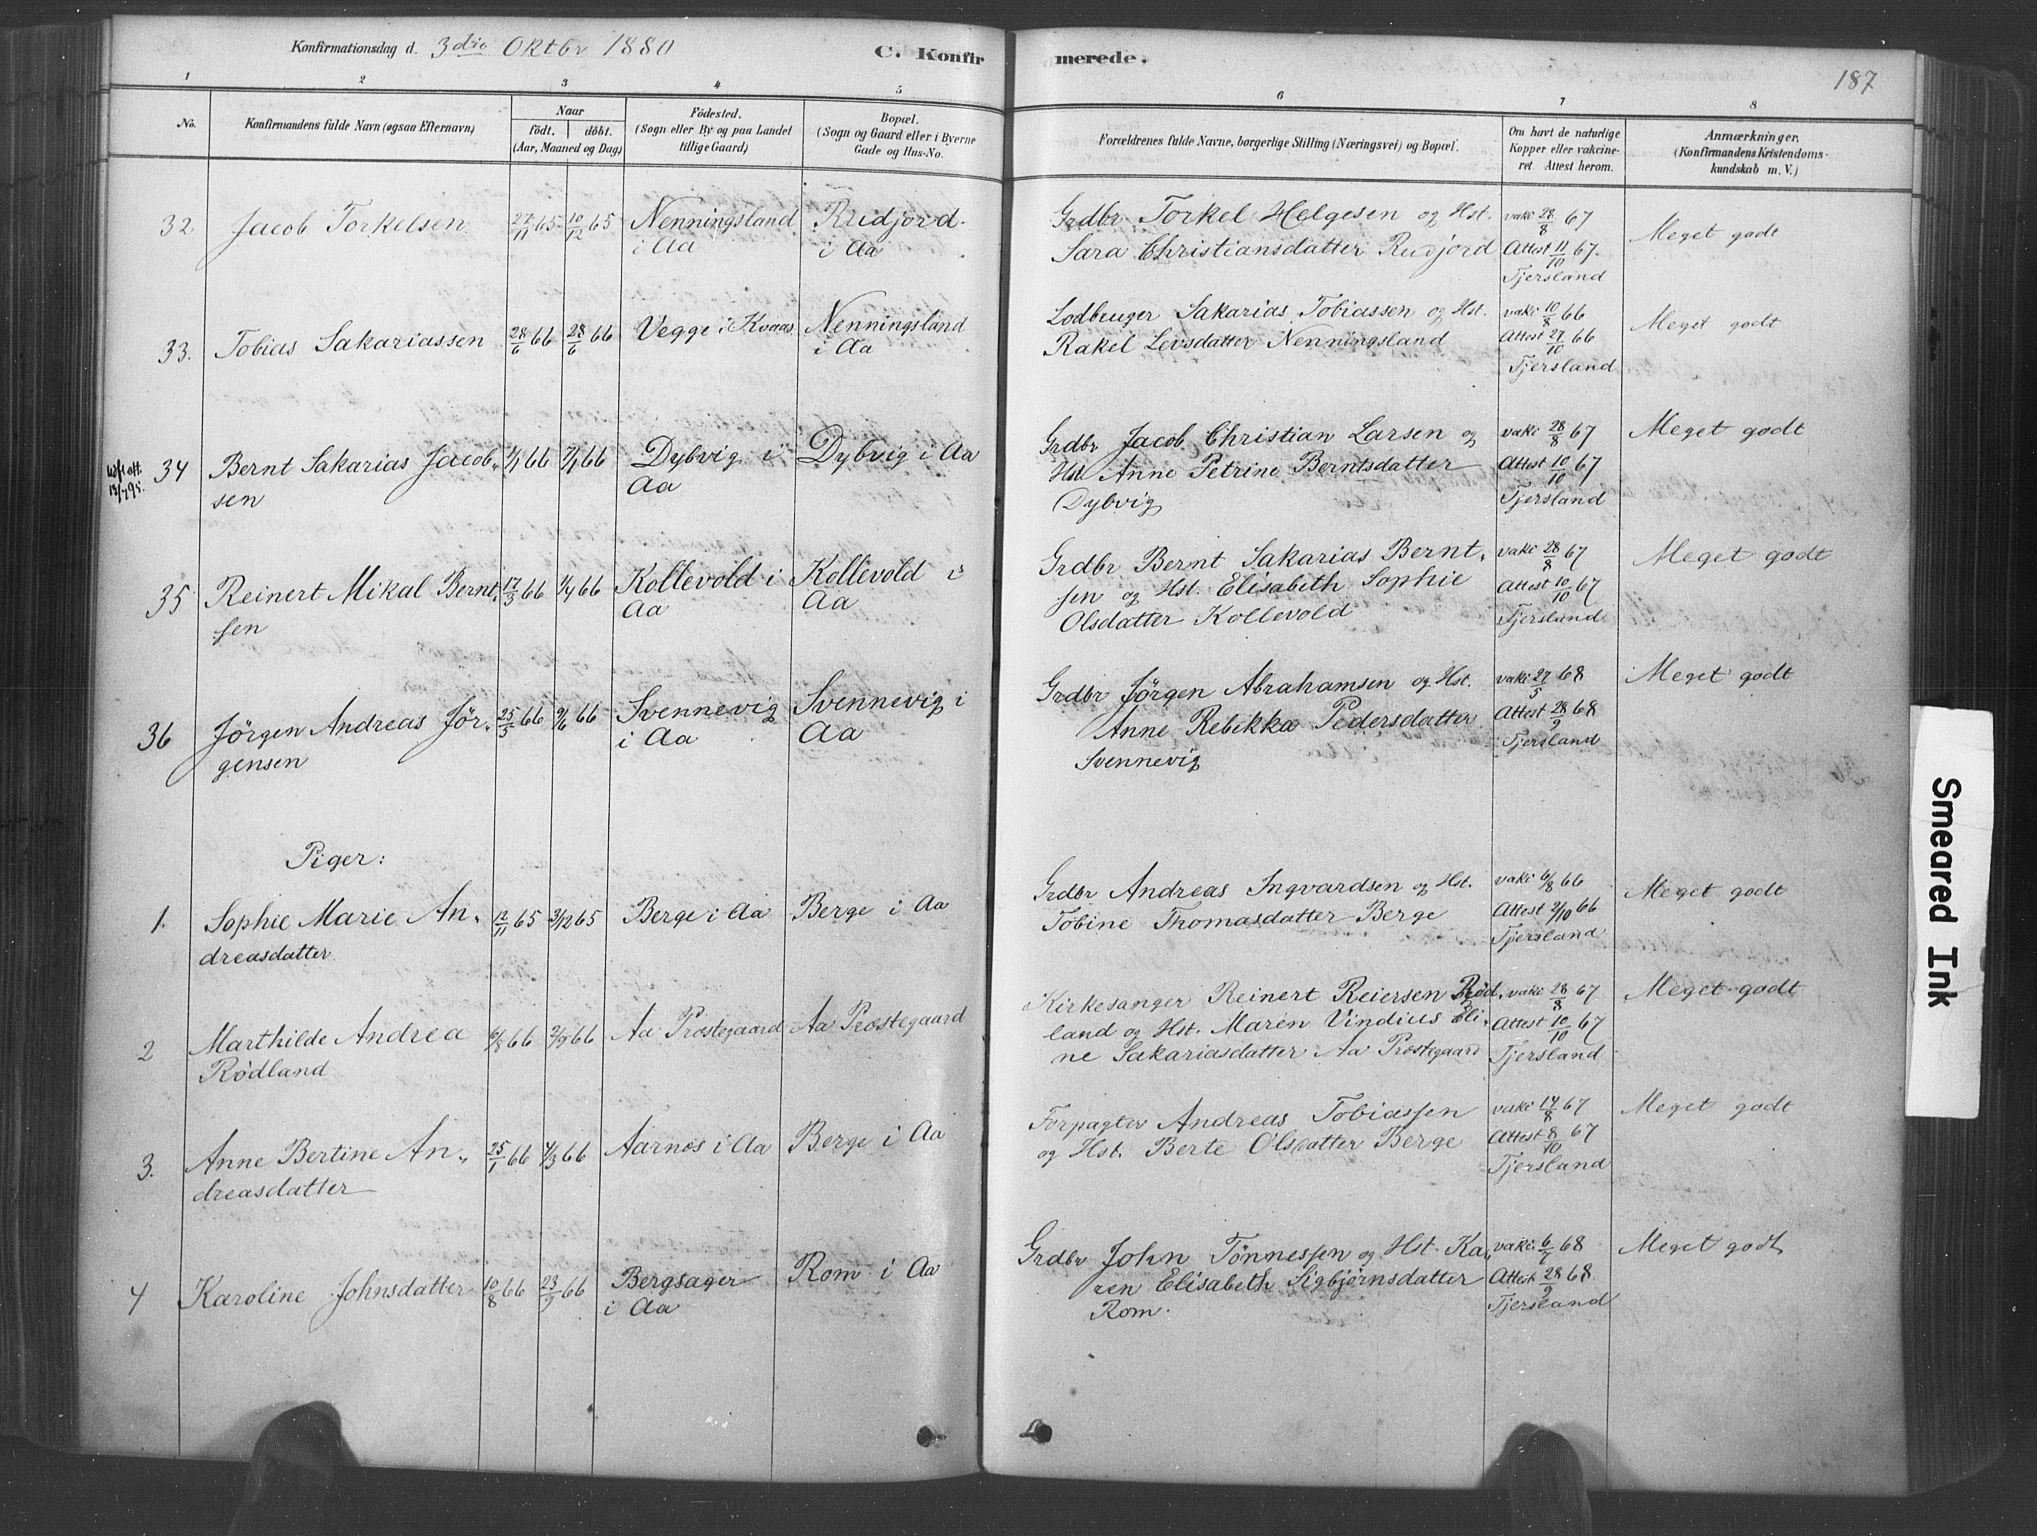 Konfirmationsdag d. 3die Oktbr 1880 C. Konfir merede. 187
1 2 3 4 5 6 7 8
No. Konfirmandens fulde Navn (ogsaa Efternavn)
Naar
födt. döbt.
(Aar, Maaned og Dag)
Födested.
(Sogn eller By og paa Landet
tillige Gaard)
Bopæl.
(Sogn og Gaard eller i Byerne
Gade og Hus-No.
Forældrenes fulde Navne, borgerlige Stilling (Næringsvei) og Bopæl.
Om havt de naturlige
Kopper eller vakcine-
ret. Attest herom.
Anmærkninger,
(Konfirmandens Kristendoms-
kundskab m. V.)
32 Jacob Torkelsen 27/11 65 10/12 65
Nenningsland
i Aa
Rudjord
i Aa
Grdbr Torkel Helgesen og Hst.
Sara Christiansdatter Rudjord
vaki 28/8 67
Attest 11/10 67.
Tjersland
Meget godt
33. Tobias Sakariassen 28/6 66 28/6 66
Vegge i Kvaas
Nenningsland
i Aa
Lodbruger Sakarias Tobiassen og Hst.
Rakel Levsdatter Nenningsland
vaki 10/8 66
Attest 27/10 66
Tjersland
Meget godt
34 Bernt Sakarias Jacob-
sen
66 66
Dybvig i
Aa
Dybvig i Aa
Grdbr Jacob Christian Larsen og
Hst Anne Petrine Berntsdatter
Dybvig
vaki 28/8 67
Attest 10/10 67
Tjersland
Meget godt
35 Reinert Mikal Bernt-
sen
17/3 66 1/4 66
Kollevold i
Aa
Kollevold i
Aa
Grdbr Bernt Sakarias Bernt-
sen og Hst. Elisabeth Sophie
Olsdatter Kollevold
vaki 28/8 67
Attest 10/10 67
Tjersland
Meget godt
36 Jørgen Andreas Jør-
gensen
25/5 66 9/6 66
Svennevig
i Aa
Svennevig i
Aa
Grdbr Jørgen Abrahamsen og Hst.
Anne Rebikka Pedersdatter
Svennevig
vaki 27/5 68
Attest 28/9 68
Tjersland
Meget godt
Piger:
1. Sophie Marie An-
dreasdatter
12/11 65 3/12 65
Berge i Aa
Berge i Aa
Grdbr Andreas Ingvardsen og Hst.
Tobine Thomasdatter Berge
vaki 6/8 66
Attest 2/10 66
Tjersland
Meget godt
2 Marthilde Andrea
Rødland
6/8 66 2/9 66
Aa Præstegaard
Aa Præstegaard
Kirkesanger Reinert Reiersen Rød-
land og Hst. Maren Vindius Eli-
ne Sakariasdatter Aa Præstegaard
vaki 28/8 67
Attest 10/10 67
Tjersland
Meget godt
3. Anne Bertine An-
dreasdatter
25/1 66 4/3 66
Aarnes i Aa
Berge i Aa
Forpagter Andreas Tobiassen
og Hst. Berte Olsdatter Berge
vaki 14/8 67
Attest 8/10 67
Tjersland
Meget godt
4 Karoline Johnsdatter 10/8 66 23/9 66
Bergsager
i Aa
Rom i Aa
Grdbr John Tønnessen og Hst. Ka-
ren Elisabeth Sigbjørnsdatter
Rom.
vaki 6/7 68
Attest 28/9 68
Tjersland
Meget godt
Smeared Ink